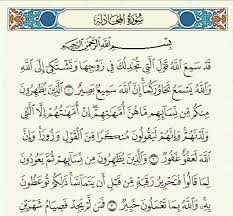 سُورَةُ المُجَادلة
بِسْمِ اللَّهِ الرَّحْمَٰنِ الرَّحِيمِ
قَدْ سَمِعَ اللَّهُ قَوْلَ الَّتِي تُجَادِلُكَ فِي زَوْجِهَا وَتَشْتَكِي إِلَى اللَّهِ
وَاللَّهُ يَسْمَعُ تَحَاوُرَكُمَا إِنَّ اللَّهَ سَمِيعٌ بَصِيرٌ ۝ الَّذِينَ يُظَاهِرُونَ
مِنكُم مِّن نِّسَائِهِم مَّا هُنَّ أُمَّهَاتِهِمْ إِنْ أُمَّهَاتُهُمْ إِلَّا الَّائِي
وَلَدْنَهُمْ وَإِنَّهُمْ لَيَقُولُونَ مُنكَرًا مِّنَ الْقَوْلِ وَزُورًا وَإِنَّ
اللَّهَ لَعَفُوٌّ غَفُورٌ ۝ وَالَّذِينَ يُظَاهِرُونَ مِن نِّسَائِهِمْ ثُمَّ يَعُودُونَ
لِمَا قَالُوا فَتَحْرِيرُ رَقَبَةٍ مِّن قَبْلِ أَن يَتَمَاسَّا ذَٰلِكُمْ تُوعَظُونَ
بِهِ وَاللَّهُ بِمَا تَعْمَلُونَ خَبِيرٌ ۝ فَمَن لَّمْ يَجِدْ فَصِيَامُ شَهْرَيْنِ